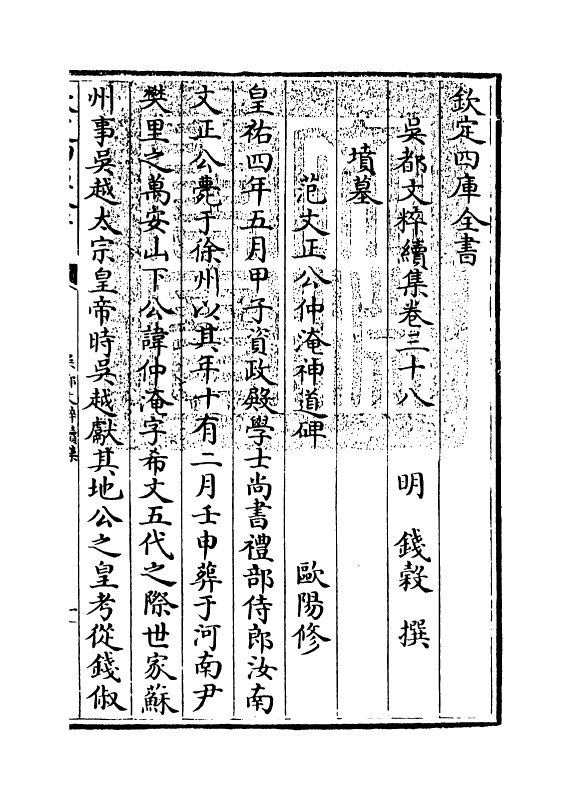 欽定四庫全書
吳都文粹續集卷三十八　　明　錢榖　撰
墳墓
范文正公仲淹神道碑　　　歐陽修
皇祐四年五月甲子資政殿學士尚書禮部侍郎汝南
文正公薨于徐州以其年十有二月壬申葬于河南尹
樊里之萬安山下公諱仲淹字希文五代之際世家蘇
州事吳越太宗皇帝時吳越獻其地公之皇考從錢俶
吳都文粹續集
一